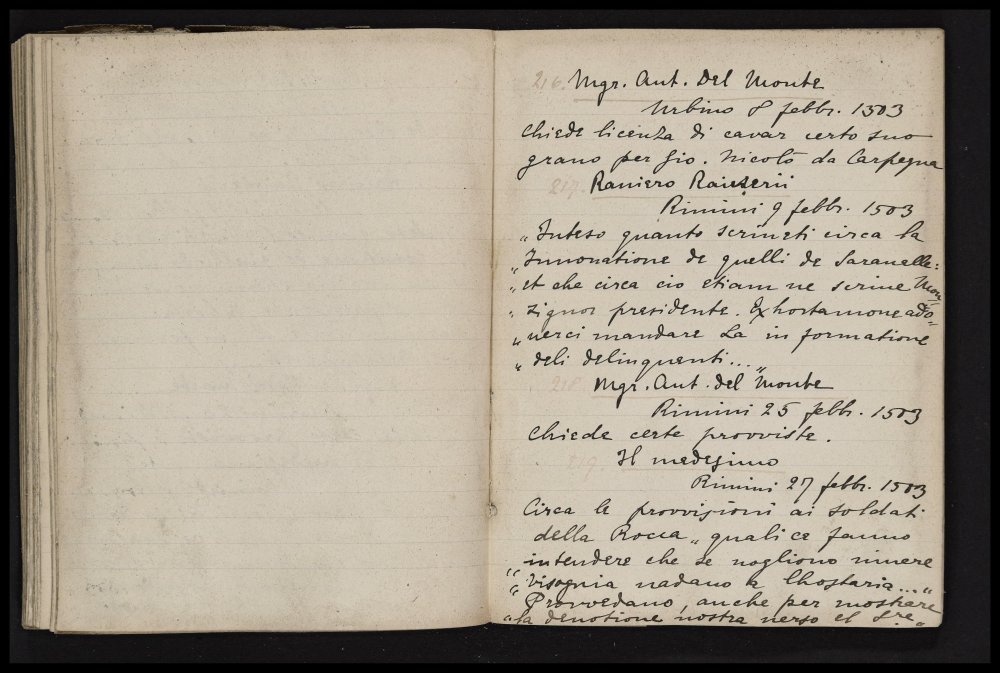 216. Mgr. Ant. Del Monte
Urbino 8 febbr. 1503
Chiede licenza di cavar certo suo
grano per Gio. Nicolò da Carpegna
217. Raniero
Rimini 9 febbr. 1503
„ Inteso quanto scriveti circa la
„ Innovatione de quelli de Saravalle:
„ et che circa cio etiam ne scrive Mon
„ signor presidente. Exhortamone ado-
„ nerci mandare La in formatione
„ deli delinquenti...„
218. Mgr. Ant. del Monte
Rimini 25 febbr. 1503
Chiede certe provviste.
219. Il medesimo
Rimini 27 febbr. 1503
Circa le provvisioni ai soldati
della Rocca „ quali ce fanno
„ intendere che se vogliono vivere
„ bisognia vadano a lhostaria...„
„ Provvedano, anche per mostrare
„ la devotione nostra verso el S.re„